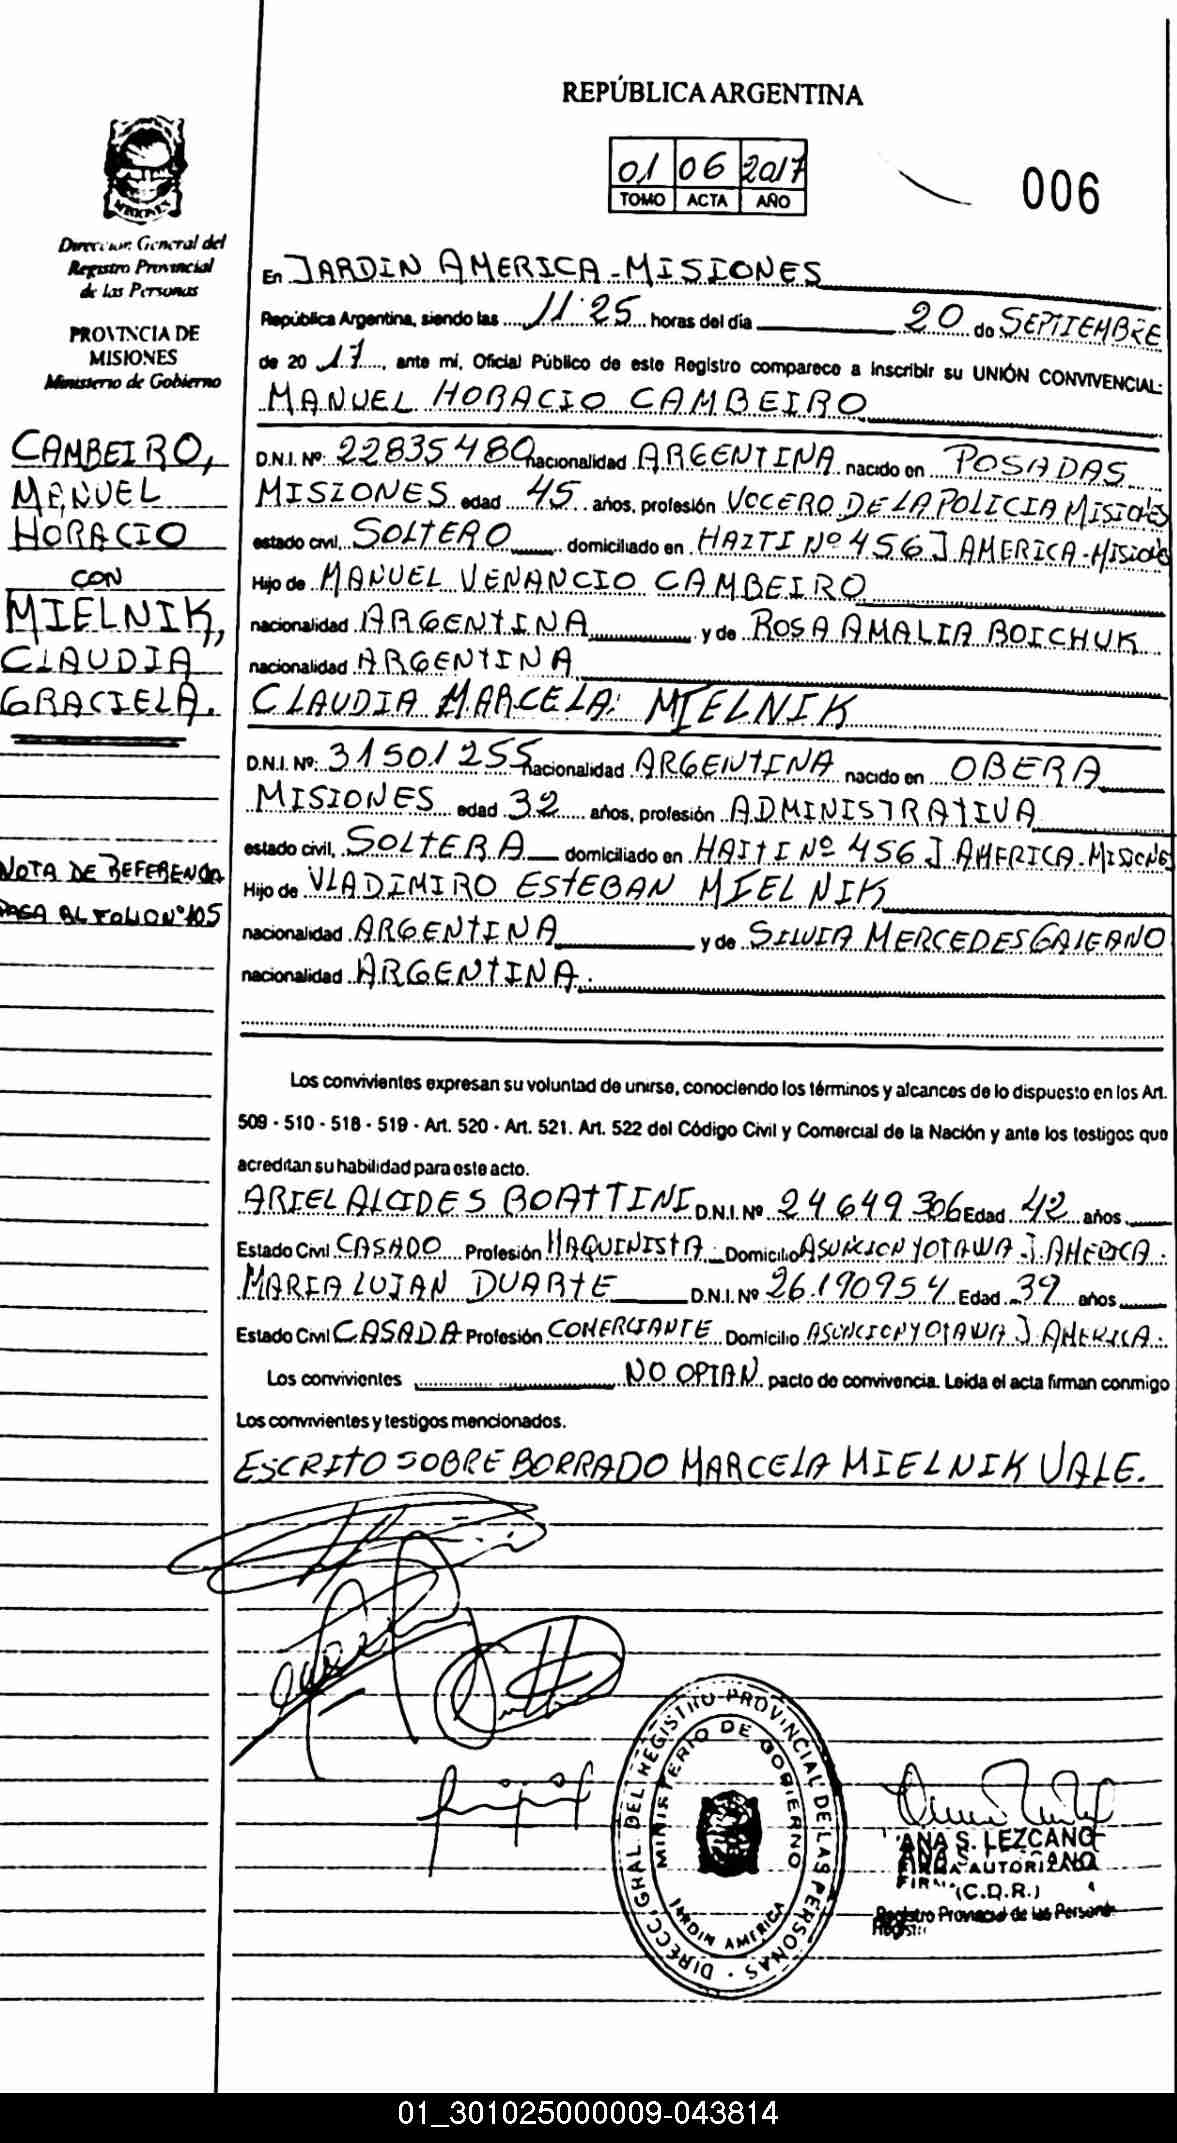 REPÚBLICA ARGENTINA
01 06 2017
TOMO ACTA AÑO
006
MISIONES
Dirección General del
Registro Provincial
de las Personas
PROVINCIA DE
MISIONES
Ministerio de Gobierno
CAMBEIRO,
MANUEL
HORACIO
CON
MIELNIK,
CLAUDIA
GRACIELA.
NOTA DE REFERENCIA
PASA AL FOLIO Nº 105
En JARDIN AMERICA - MISIONES
República Argentina, siendo las 11:25 horas del día 20 de SEPTIEMBRE
de 20 17, ante mí, Oficial Público de este Registro comparece a inscribir su UNIÓN CONVIVENCIAL:
MANUEL HORACIO CAMBEIRO
D.N.I. Nº: 22835480 nacionalidad ARGENTINA nacido en POSADAS
MISIONES edad 45 años, profesión VOCERO DE LA POLICIA MISIONES
estado civil, SOLTERO domiciliado en HAITI Nº 456 J AMERICA - MISIONES
Hijo de MANUEL VENANCIO CAMBEIRO
nacionalidad ARGENTINA y de ROSA AMALIA BOICHUK
nacionalidad ARGENTINA
CLAUDIA MARCELA MIELNIK
D.N.I. Nº: 31501255 nacionalidad ARGENTINA nacido en OBERA
MISIONES edad 32 años, profesión ADMINISTRATIVA
estado civil, SOLTERA domiciliado en HAITI Nº 456 J AMERICA. MISIONES
Hijo de VLADIMIRO ESTEBAN MIELNIK
nacionalidad ARGENTINA y de SILVIA MERCEDES GALEANO
nacionalidad ARGENTINA.
Los convivientes expresan su voluntad de unirse, conociendo los términos y alcances de lo dispuesto en los Art.
509 - 510 - 518 - 519 - Art. 520 - Art. 521. Art. 522 del Código Civil y Comercial de la Nación y ante los testigos que
acreditan su habilidad para este acto.
ARIEL ALCIDES BOATTINI D.N.I. Nº 24649306 Edad 42 años
Estado Civil CASADO Profesión MAQUINISTA Domicilio ASUNCION Y OTAWA J. AMERICA.
MARIA LUJAN DUARTE D.N.I. Nº 26.190954 Edad 39 años
Estado Civil CASADA Profesión COMERCIANTE Domicilio ASUNCION Y OTAWA J AMERICA.
Los convivientes NO OPTAN pacto de convivencia. Leída el acta firman conmigo
Los convivientes y testigos mencionados.
ESCRITO SOBRE BORRADO MARCELA MIELNIK VALE.
DIRECC. GRAL DEL REGISTRO PROVINCIAL DE LAS PERSONAS
MINISTERIO DE GOBIERNO
JARDIN AMERICA
ANA S. LEZCANO
FIRMA AUTORIZADA
(C.D.R.)
Registro Provincial de las Personas
01_301025000009-043814